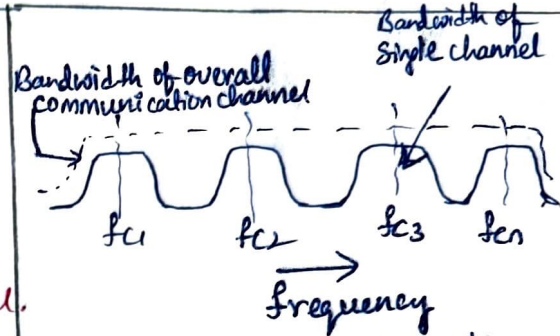 Bandwidth of
Single channel
Bandwidth of overall
communication channel
fc1 fc2 fc3 fcn
frequency